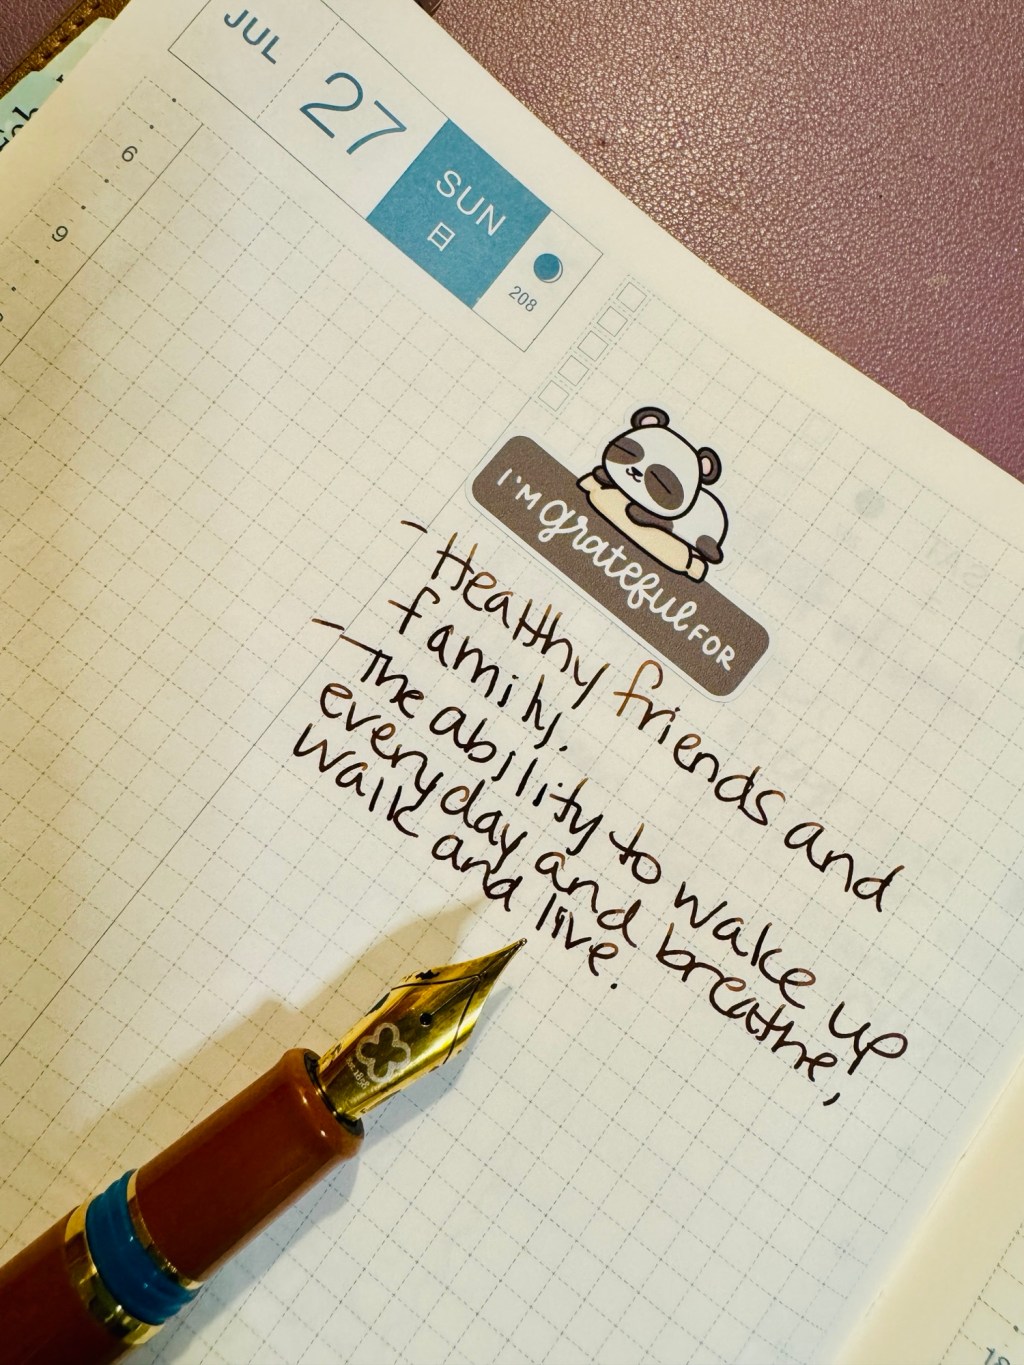 JUL 27 SUN
日
208
6
9
I'M grateful FOR
- Healthy friends and
family.
- The ability to wake up
everyday and breathe,
walk and live.